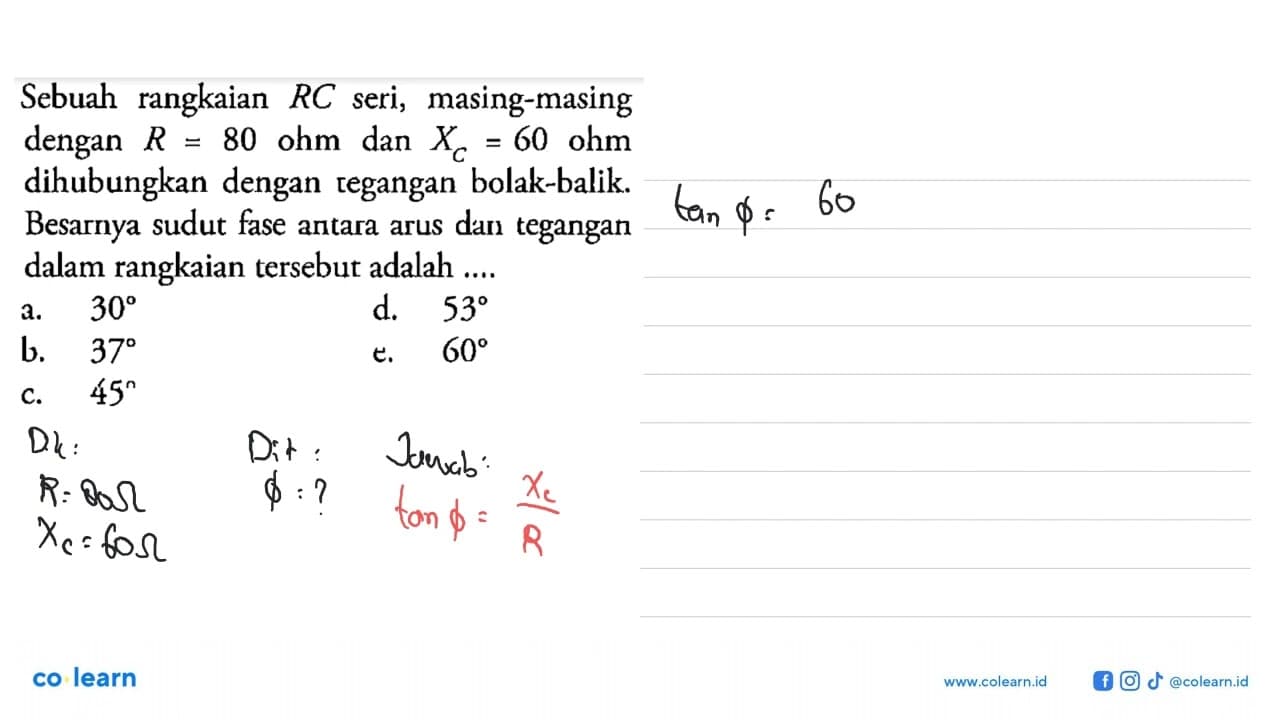 Sebuah rangkaian RC seri, masing-masing
dengan R = 80 ohm dan X_C = 60 ohm
dihubungkan dengan tegangan bolak-balik.
Besarnya sudut fase antara arus dan tegangan
dalam rangkaian tersebut adalah ....
a. 30° d. 53°
b. 37° e. 60°
c. 45°
Dk: Dit: Jawab:
R = 80Ω ϕ : ? tan ϕ = X_c / R
X_c = 60Ω
tan ϕ = 60
co learn
www.colearn.id @colearn.id